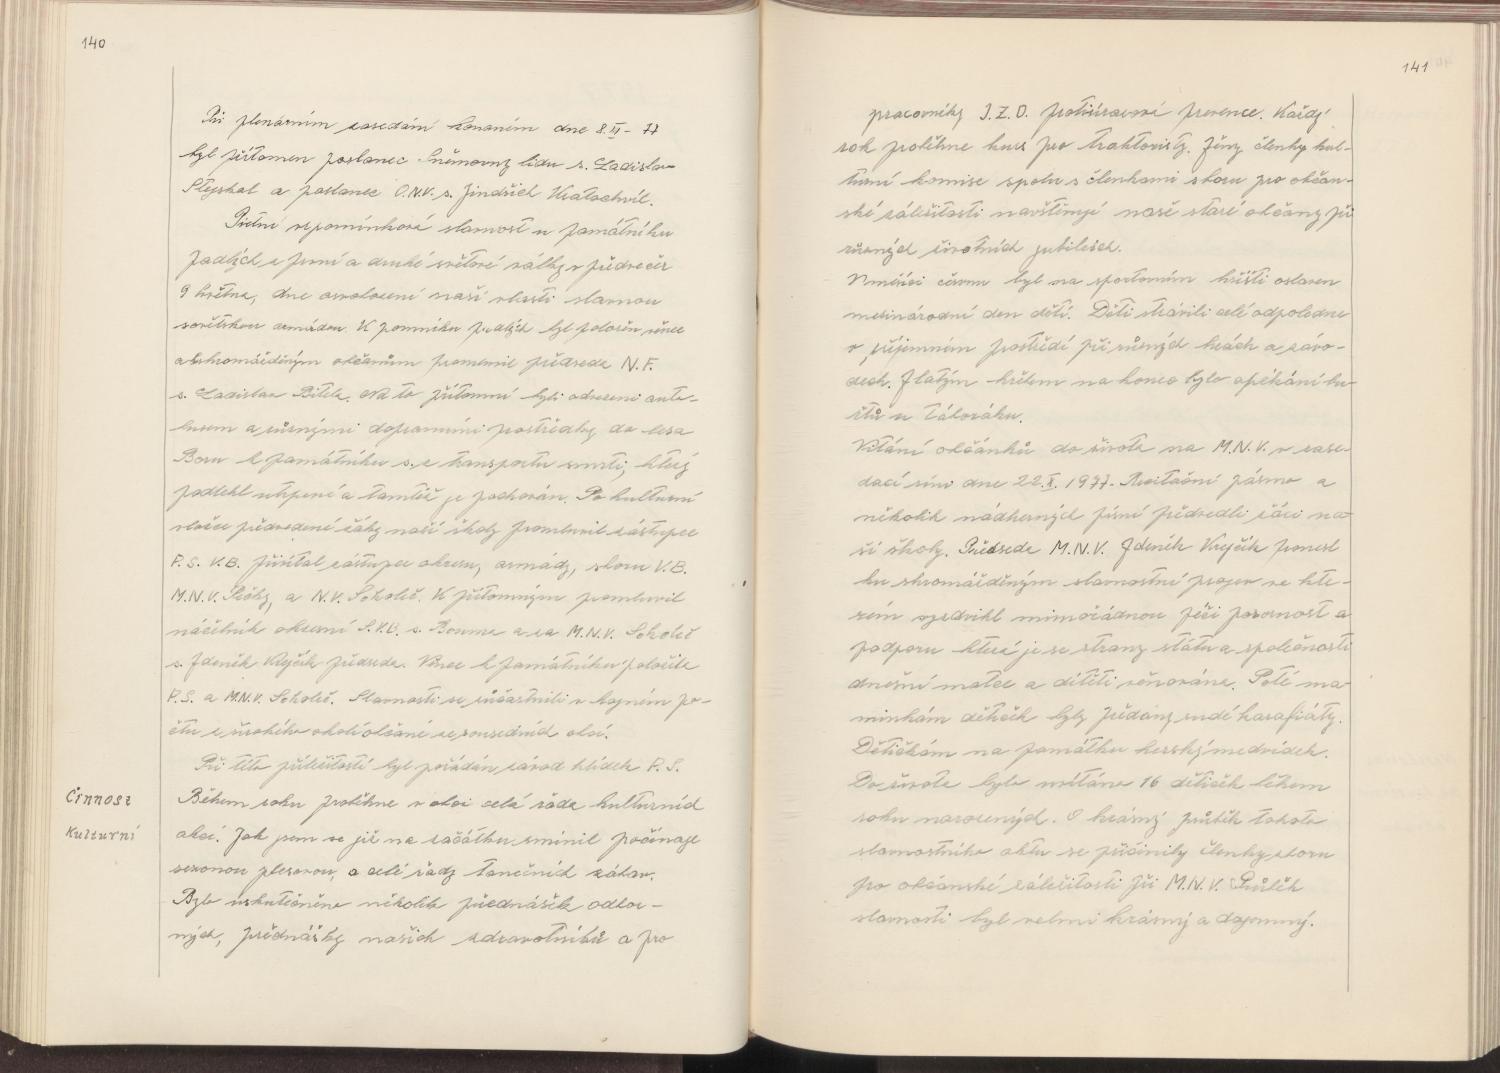 140
Při plenárním zasedání konaném dne 8.VI - 77
byl přítomen poslanec Sněmovny lidu s. Ladislav
Stejskal a poslanec O.N.V. s. Jindřich Kratochvíl.
Pietní vzpomínková slavnost u památníku
padlých z první a druhé světové války v předvečer
9 května, dne osvobození naší vlasti slavnou
sovětskou armádou. K pomníku padlých byl položen věnec
a shromážděným občanům promluvil předseda N.F.
s. Ladislav Bitela. Na to přítomní byli odvezeni auto-
busem a různými dopravními prostředky do lesa
Boru k památníku s. z transportu smrti, který
podlehl utrpení a tamtéž je pochován. Po kulturní
vložce předvedené žáky naší školy promluvil zástupce
P.S. V.B. přivítal zástupce okresu, armády, sboru V.B.
M.N.V. Pečky, a N.V. Sokoleč. K přítomným promluvil
náčelník okresní S.V.B. s. Bouma a za M.N.V. Sokoleč
s. Zdeněk Krejčík předseda. Věnec k památníku položila
P.S. a M.N.V. Sokoleč. Slavnosti se zůčastnili v hojném po-
čtu z širokého okolí občané ze sousedních obcí.
Při této příležitosti byl pořádán závod hlídek P.S.
Činnost
Kulturní
Během roku proběhne v obci celá řada kulturních
akcí. Jak jsem se již na začátku zmínil počínaje
sezonou plesovou, a celé řady tanečních zábav.
Bylo uskutečněno několik přednášek odbor-
ných, přednášky našich zdravotníků a pro
141
pracovníky J.Z.D. protiúrazové prevence. Každý
rok proběhne kurs pro traktoristy. Ženy členky kul-
turní komise spolu s členkami sboru pro občan-
ské záležitosti navštěvují naše staré občany při
různých životních jubileích.
V měsíci červnu byl na sportovním hřišti oslaven
mezinárodní den dětí. Děti strávili celé odpoledne
v příjemném prostředí při různých hrách a závo-
dech. Zlatým hřebem na konec bylo opékání bu-
řtů u táboráku.
Vítání občánků do života na M.N.V. v zase-
dací síni dne 22.X. 1977. Recitační pásmo a
několik nádherných písní předvedli žáci na-
ší školy. Předseda M.N.V. Zdeněk Krejčík pronesl
ku shromážděným slavnostní projev ve kte-
rém vyzdvihl mimořádnou péči pozornost a
podporu která je ze strany státu a společnosti
dnešní matce a dítěti věnována. Poté ma-
minkám dětiček byly předány rudé karafiáty.
Dětičkám na památku hezký medvídek.
Do života bylo uvítáno 16 dětiček během
roku narozených. O krásný průběh tohoto
slavnostního aktu se přičinily členky sboru
pro občanské záležitosti při M.N.V. Průběh
slavnosti byl velmi krásný a dojemný.